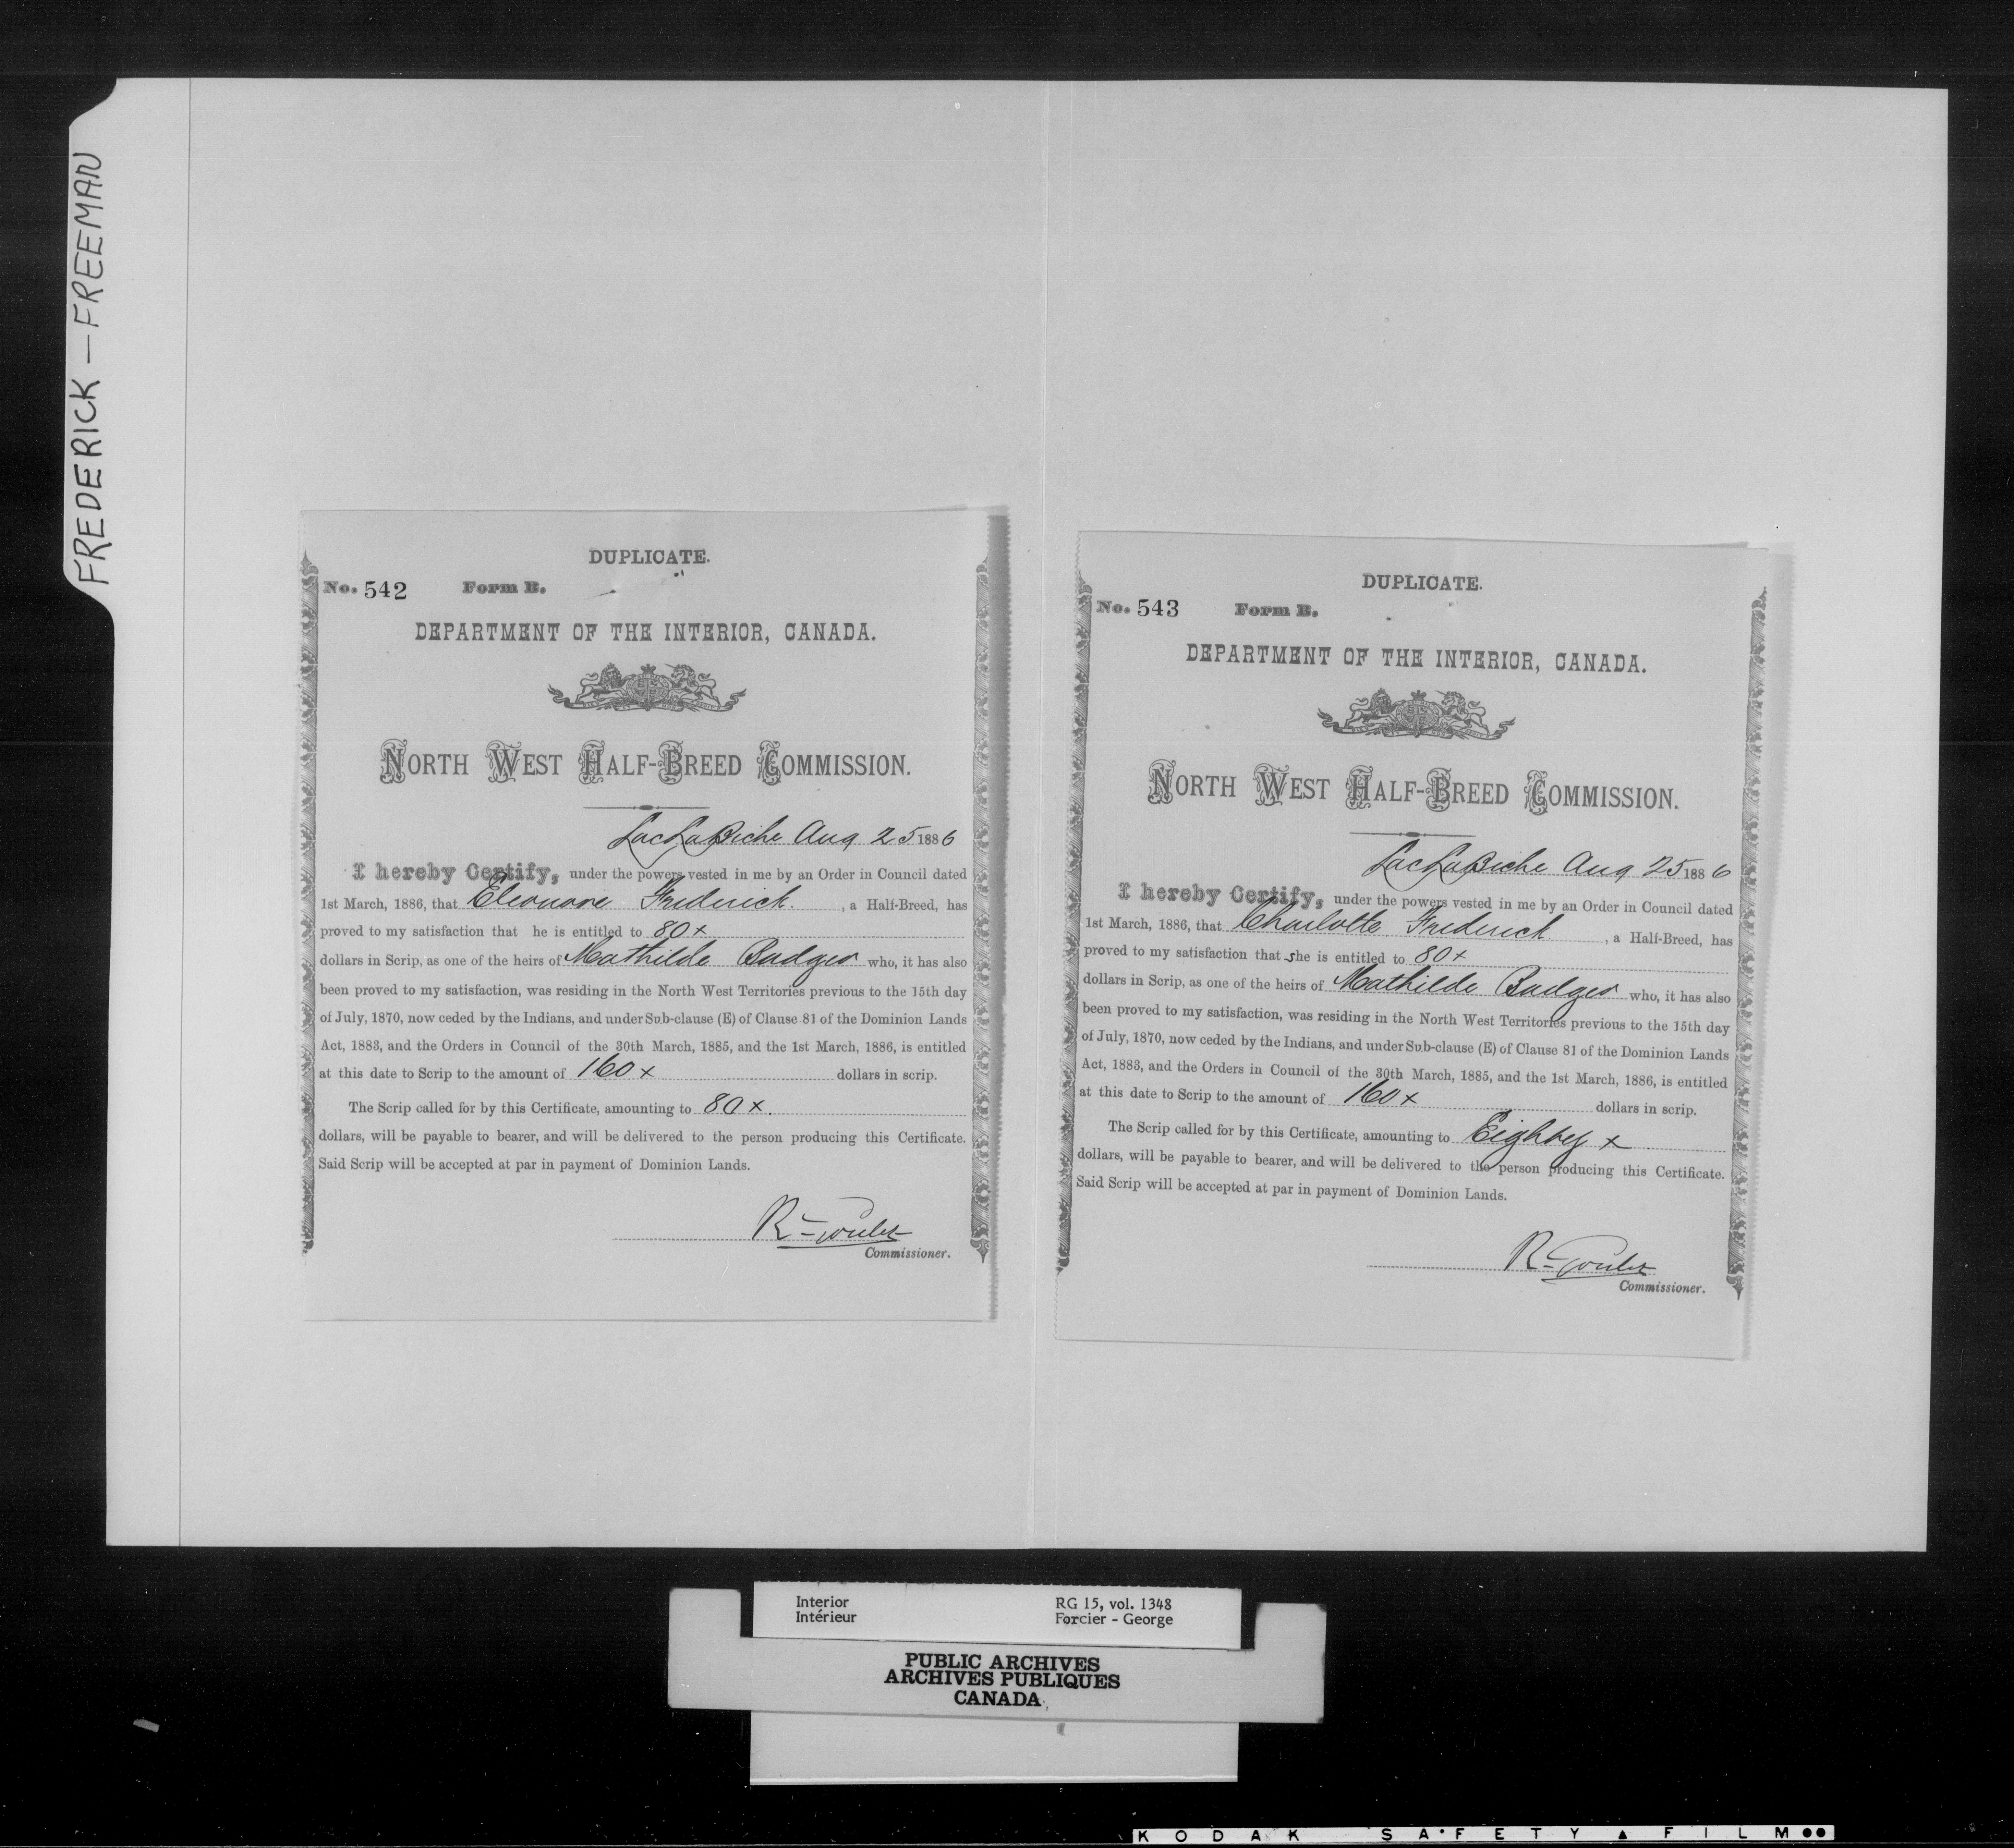 FREDERICK — FREEMAN
DUPLICATE.
No. 542 Form B.
DEPARTMENT OF THE INTERIOR, CANADA.
NORTH WEST HALF-BREED COMMISSION.
Lac La Biche Aug 25 1886
I hereby Certify, under the powers vested in me by an Order in Council dated
1st March, 1886, that Eleonore Frederick. , a Half-Breed, has
proved to my satisfaction that he is entitled to 80x
dollars in Scrip, as one of the heirs of Mathilde Badger who, it has also
been proved to my satisfaction, was residing in the North West Territories previous to the 15th day
of July, 1870, now ceded by the Indians, and under Sub-clause (E) of Clause 81 of the Dominion Lands
Act, 1883, and the Orders in Council of the 30th March, 1885, and the 1st March, 1886, is entitled
at this date to Scrip to the amount of 160x dollars in scrip.
The Scrip called for by this Certificate, amounting to 80x.
dollars, will be payable to bearer, and will be delivered to the person producing this Certificate.
Said Scrip will be accepted at par in payment of Dominion Lands.
R Goulet
Commissioner.
DUPLICATE.
No. 543 Form B.
DEPARTMENT OF THE INTERIOR, CANADA.
NORTH WEST HALF-BREED COMMISSION.
Lac La Biche Aug 25 1886
I hereby Certify, under the powers vested in me by an Order in Council dated
1st March, 1886, that Charlotte Frederick , a Half-Breed, has
proved to my satisfaction that she is entitled to 80x
dollars in Scrip, as one of the heirs of Mathilde Badger who, it has also
been proved to my satisfaction, was residing in the North West Territories previous to the 15th day
of July, 1870, now ceded by the Indians, and under Sub-clause (E) of Clause 81 of the Dominion Lands
Act, 1883, and the Orders in Council of the 30th March, 1885, and the 1st March, 1886, is entitled
at this date to Scrip to the amount of 160x dollars in scrip.
The Scrip called for by this Certificate, amounting to Eighty x
dollars, will be payable to bearer, and will be delivered to the person producing this Certificate.
Said Scrip will be accepted at par in payment of Dominion Lands.
R Goulet
Commissioner.
Interior RG 15, vol. 1348
Intérieur Forcier - George
PUBLIC ARCHIVES
ARCHIVES PUBLIQUES
CANADA
KODAK SAFETY FILM